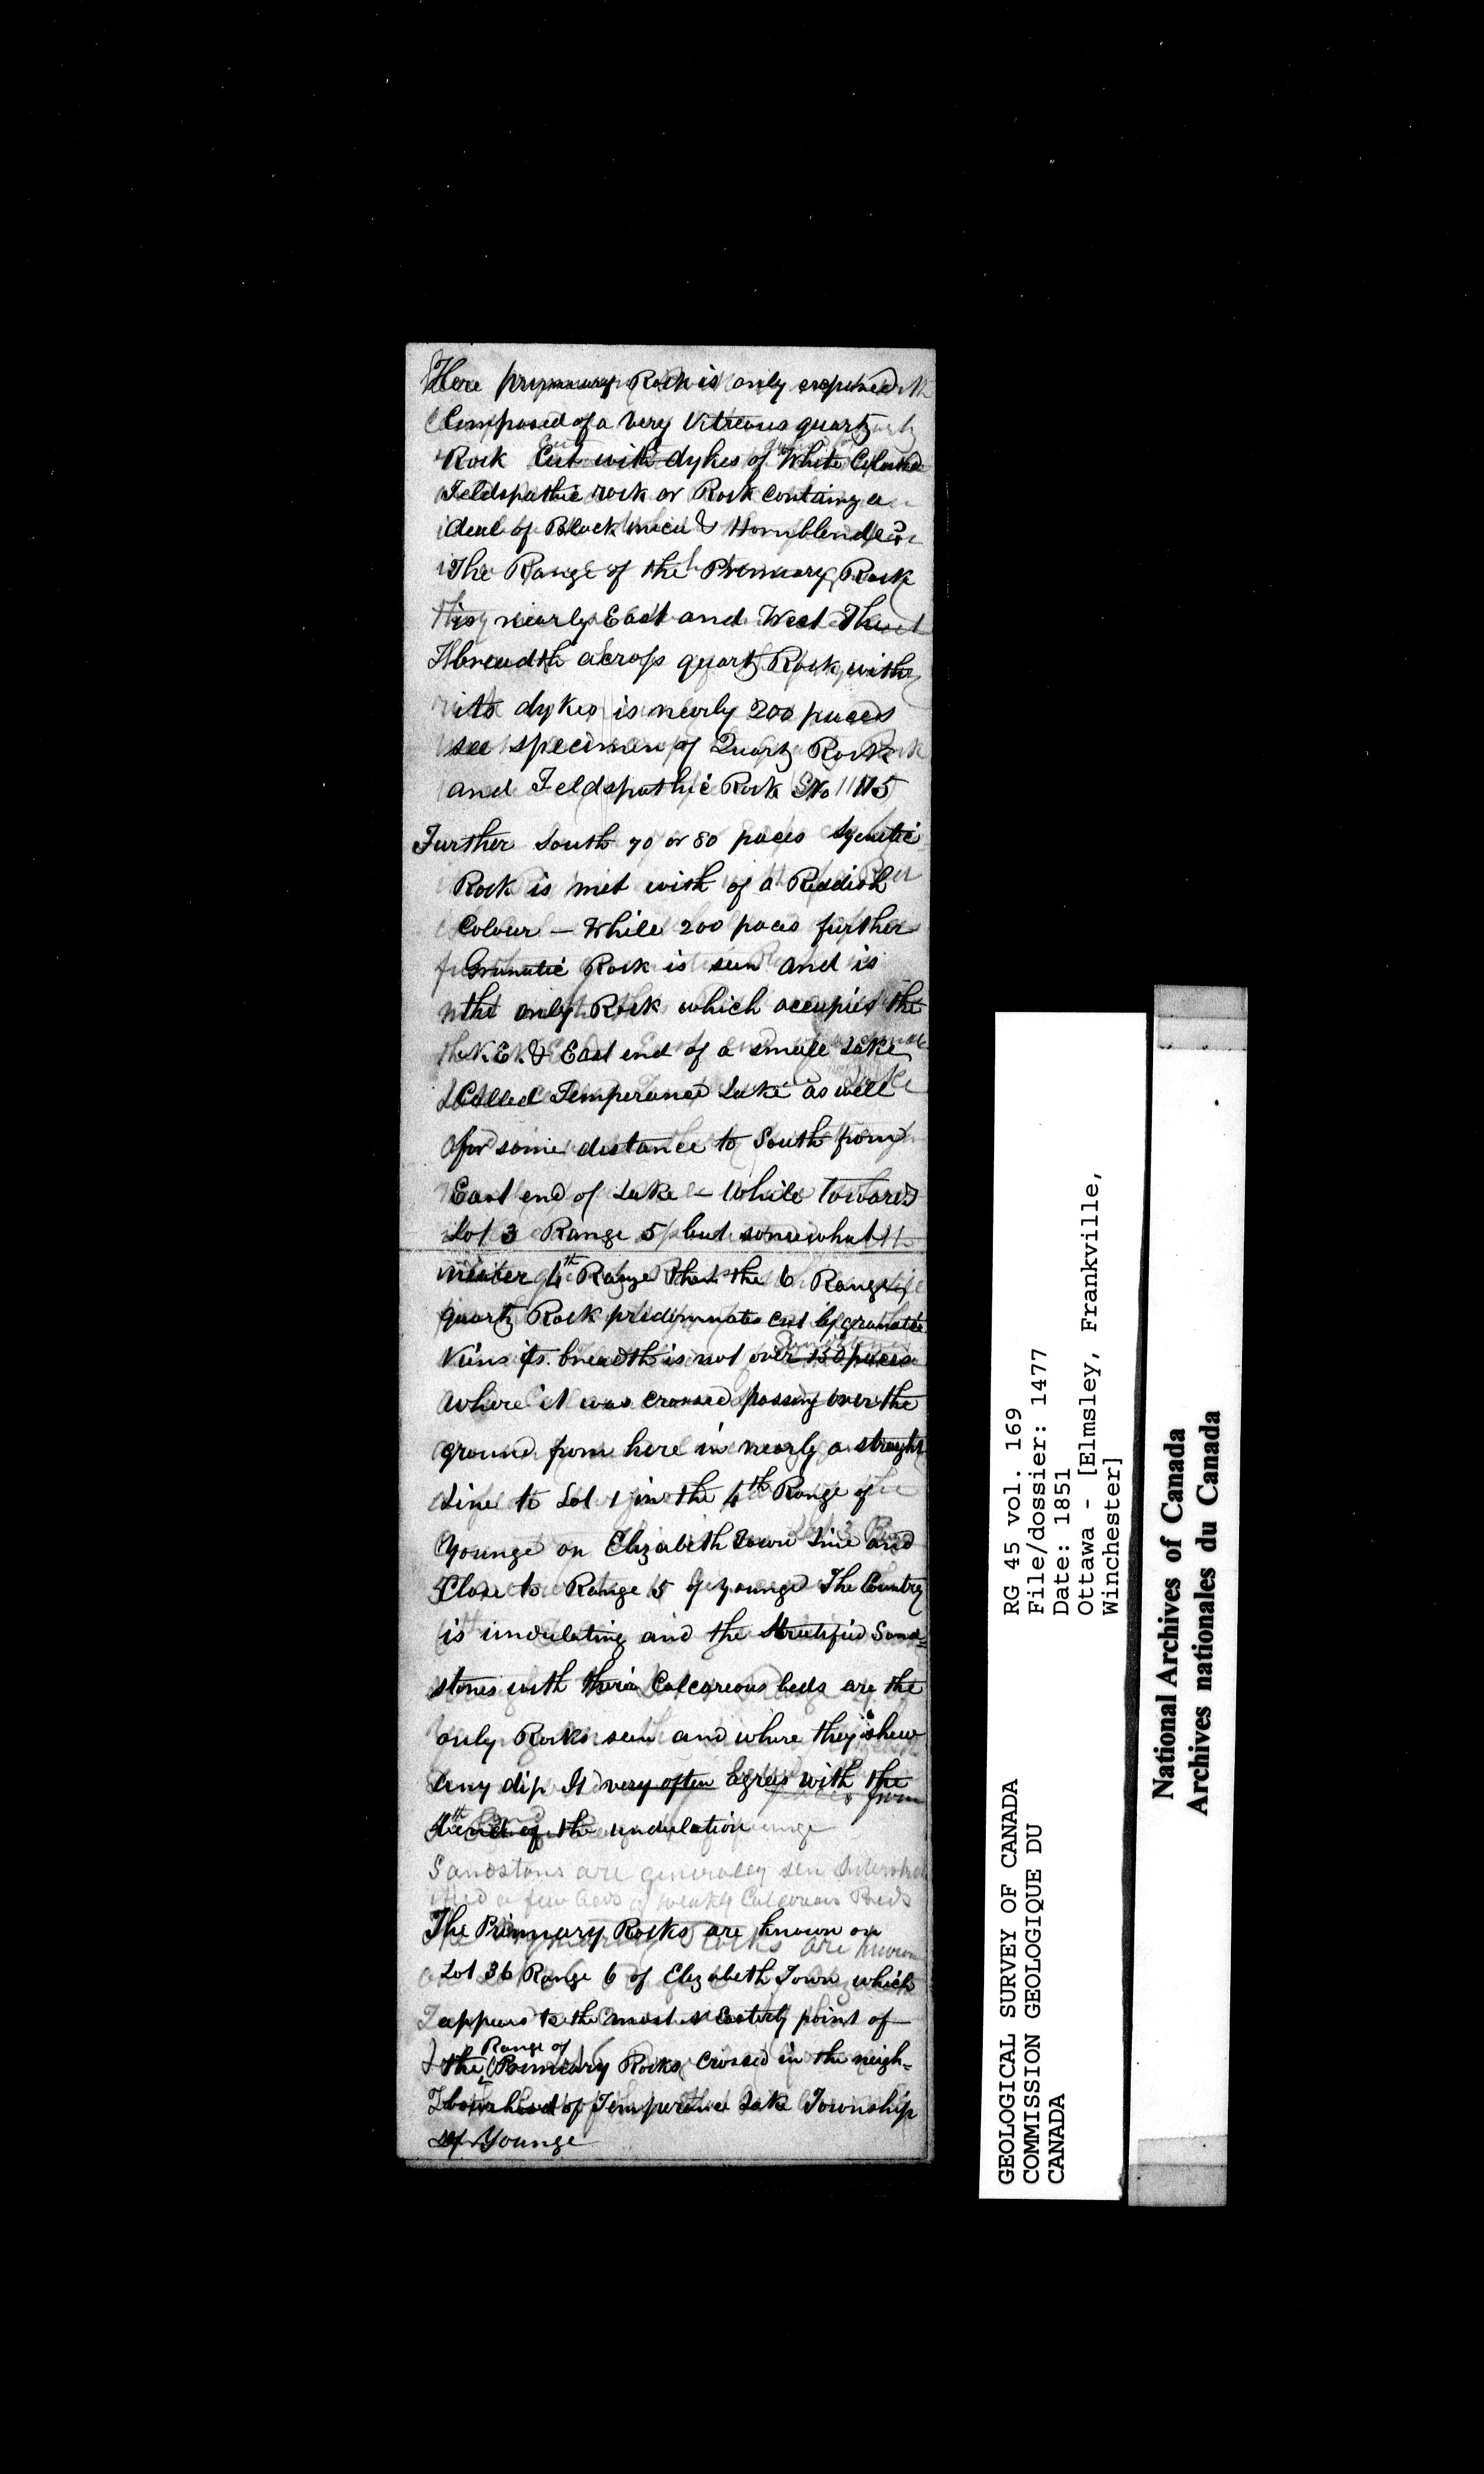 Here primmary Rock is only exposed
Composed of a very Vitreous quartz
Rock Cut with dykes of White Colored
Feldspathic rock or Rock containg a
deal of Black mica & Hornblende
The Range of the Primary Rock
is nearly East and West The
breadth across quartz Rock with
its dykes is nearly 200 paces
see specimen of Quartz Rock
and Feldspathic Rock No 115
Further South 70 or 80 paces Syenetic
Rock is met with of a Reddish
Colour — While 200 paces further
Granatic Rock is seen and is
the only Rock which occupies the
N.E. & East end of a small Lake
Called Temperance Lake as well
for some distance to South from
East end of Lake — While towards
Lot 3 Range 5 but somewhat
nearer 4th Range than the 6 Range
quartz Rock predominates cut by granatic
Veins its breadth is not over 150 paces
where it was crossed passing over the
ground from here in nearly a straight
Line to Lot 1 in the 4th Range of
Younge on Elizabeth Town Line and
Close to Range 5 of Younge The Country
is undulating and the Stratified Sand=
stones with their Calcareous beds are the
only Rocks seen and where they shew
any dip It very often agrees with the
end of the undulation
Sandstons are generally seen
a few beds of Calcareous Beds
The Primary Rocks are known on
Lot 36 Range 6 of Elizabeth Town which
appears to the most Easterly point of
Range of
the Primary Rocks crossed in the neigh=
bourhood of Temperance Lake Township
of Younge
GEOLOGICAL SURVEY OF CANADA
COMMISSION GEOLOGIQUE DU
CANADA
RG 45 vol. 169
File/dossier: 1477
Date: 1851
Ottawa - [Elmsley, Frankville,
Winchester]
National Archives of Canada
Archives nationales du Canada